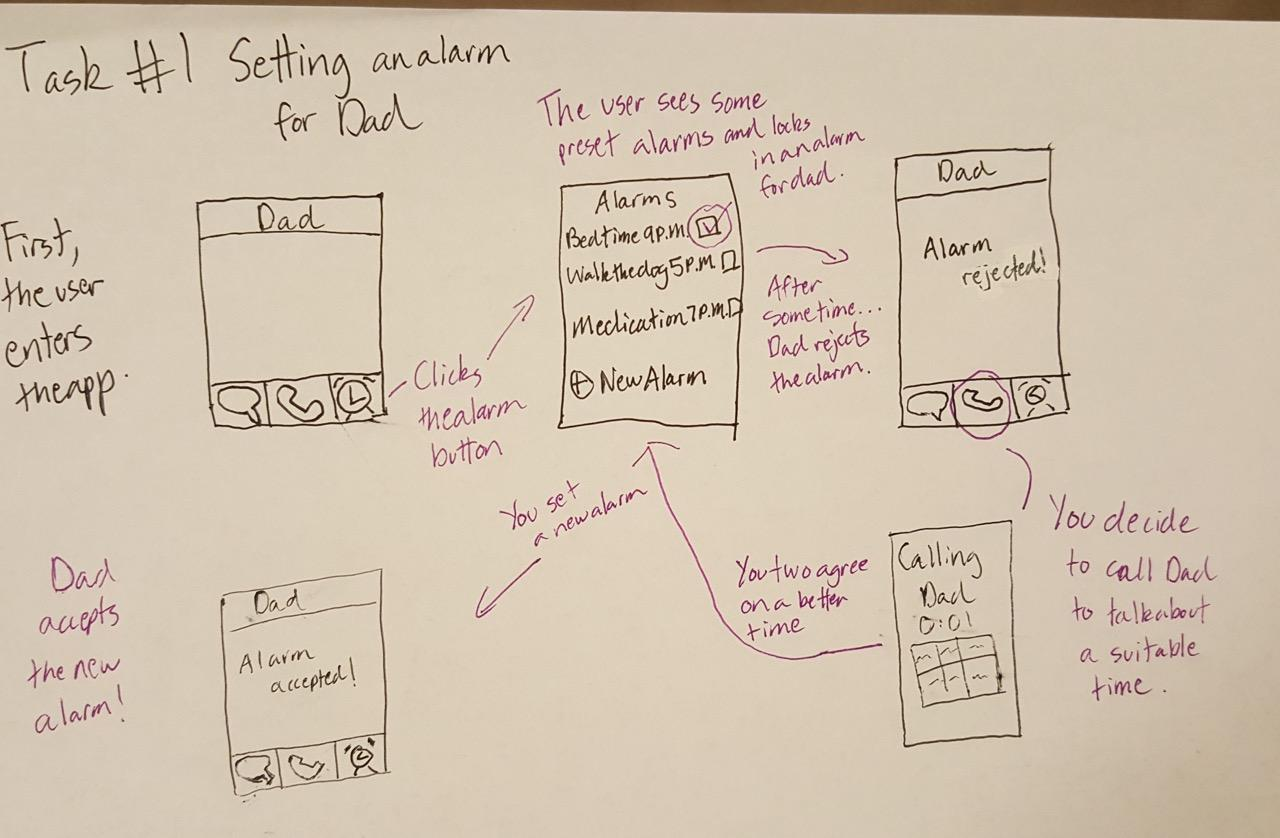 Task #1 Setting an alarm
for Dad
First,
the user
enters
the app.
Dad
Clicks
the alarm
button
The user sees some
preset alarms and locks
in an alarm
for dad.
Alarms
Bedtime 9 p.m.
Walk the dog 5 p.m.
Medication 7 p.m.
New Alarm
After
some time...
Dad rejects
the alarm.
Dad
Alarm
rejected!
You decide
to call Dad
to talk about
a suitable
time.
Calling
Dad
0:01
You two agree
on a better
time
You set
a new alarm
Dad
Alarm
accepted!
Dad
accepts
the new
alarm!